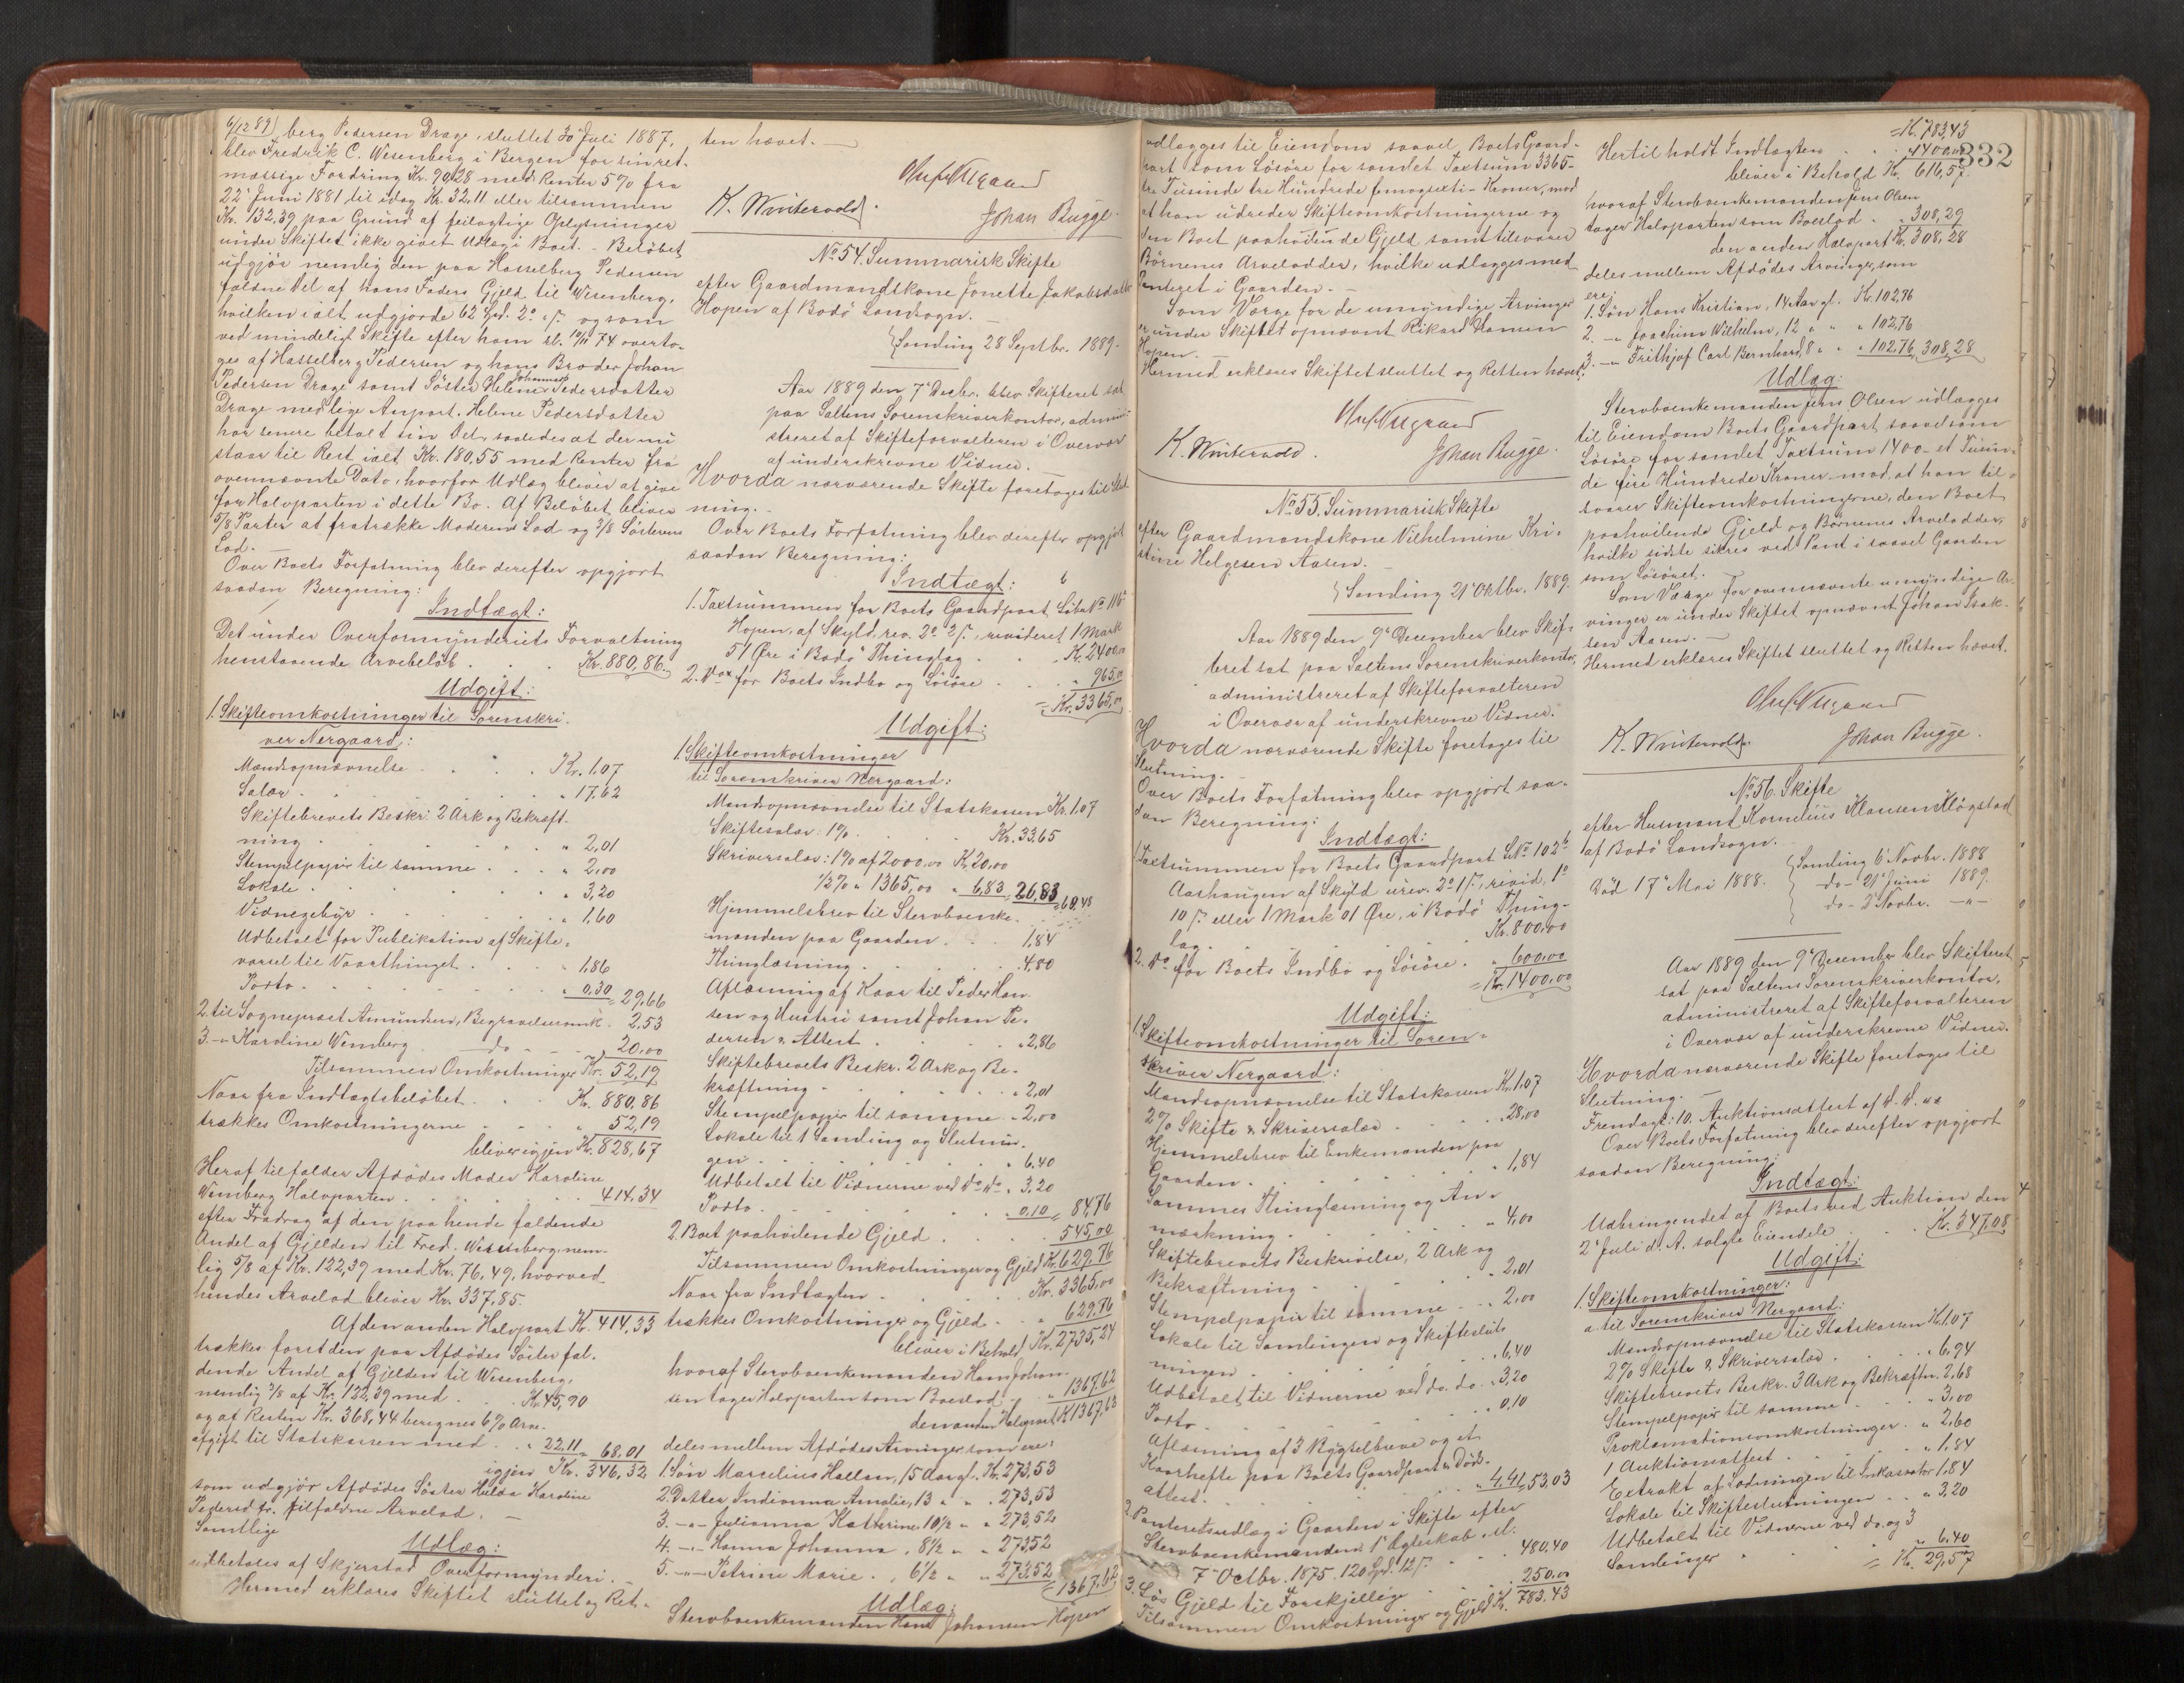 6/12 89
berg Pedersen Drage, sluttet 30 Juli 1887,
blev Fredrik C. Wesenberg i Bergen for sin ret-
mæssige Fordring Kr. 90,28 med Renter 5% fra
22 Juni 1881 til idag Kr. 32,11 eller tilsammen
Kr. 132,39 paa Grund af feilagtige Oplysninger
under Skiftet ikke givet Udlæg i Boet. - Beløbet
udgjør nemlig den paa Hasselberg Pedersen
faldne Del af hans Faders Gjeld til Wesenberg,
hvilken ialt udgjorde 62 Spd. 2 og som
ved mindeligt Skifte efter ham 10/11 74 overto-
ges af Hasselberg Pedersen og hans Broder Johan
Pedersen Drage samt Søster Helene Johanna Pedersdatter
Drage med lige Anpart. Helene Pedersdatter
har senere betalt sin Del, saaledes at der nu
staar til Rest ialt Kr. 180,55 med Renter fra
ovennævnte Dato, hvorfor Udlæg bliver at give
for Halvparten i dette Bo. Af Beløbet bliver
5/8 Parter at fratrække Moderens Lod og 3/8 Søsterens
Lod. -
Over Boets Forfatning blev derefter opgjort
saadan Beregning:
Indtægt:
Det under Overformynderiets Forvaltning
henstaaende Arvebeløb . . . Kr. 880,86
Udgift:
1. Skifteomkostninger til Sorenskri-
ver Nergaard:
Mandsopnævnelse . . . Kr. 1,07
Salær . . . " 17,62
Skiftebrevets Beskr: 2 Ark og Bekræft-
ning . . . " 2,01
Stempelpapir til samme . . . " 2,00
Lokale . . . " 3,20
Vidnegebyr . . . " 1,60
Udbetalt for Publikation af Skifte-
varsel til Vaarthinget . . . " 1,86
Porto . . . " 0,30 = 29,66
2. til Sogneprest Amundsen, Begravelsesomk. 2,53
3. -"- Karoline Wenberg do 20,00
Tilsammen Omkostninger Kr. 52,19
Naar fra Indtægtsbeløbet . . . Kr. 880,86
trækkes Omkostningerne . . . " 52,19
bliver igjen Kr. 828,67
Heraf tilfalder Afdødes Moder Karoline
Wenberg Halvparten . . . 414,34
efter Fradrag af den paa hende faldende
Andel af Gjelden til Fred. Wesenberg, nem-
lig 5/8 af Kr. 122,39 med Kr. 76,49, hvorved
hendes Arvelod bliver Kr. 337,85.
Af den anden Halvpart Kr. 414,33
trækkes foret den paa Afdødes Søster fal-
dende Andel af Gjelden til Wesenberg,
nemlig 3/8 af Kr. 122,39 med . . Kr. 45,90
og af Resten Kr. 368,44 beregnes 6% Arve-
afgift til Statskassen med . . " 22,11 = 68,01
igjen Kr. 346,32
som udgjør Afdødes Søster Hilda Karoline
Pedersdtr. tilfaldne Arvelod. -
Samtlige
Udlæg:
udbetales af Skjerstad Overformynderi. -
Hermed erklæres Skiftet sluttet og Ret-
ten hævet. -
Oluf Nergaard
K. Wintervold. Johan Bugge.
No 54. Summarisk Skifte
efter Gaardmandskone Jonette Jakobsdatter
Hopen af Bodø Landsogn. -
Samling 28 Septbr. 1889.
Aar 1889 den 7 Decbr. blev Skifteret sat
paa Saltens Sorenskriverkontor, admini-
streret af Skifteforvalteren i Overvær
af underskrevne Vidner. -
Hvorda nærværende Skifte foretoges til Slut-
ning. -
Over Boets Forfatning blev derefter opgjort
saadan Beregning:
Indtægt:
1. Taxtsummen for Boets Gaardpart LøbeNo 116
Hopen, af Skyld, rev. 2 2, revideret 1 Mark
51 Øre i Bodø Thinglag . . Kr. 2400,00
2. Do for Boets Indbo og Løsøre . . " 965,00
= Kr. 3365,00
Udgift:
1. Skifteomkostninger
til Sorenskriver Nergaard:
Mandsopnævnelse til Statskassen Kr. 1,07
Skiftesalær: 1% . . . Kr. 33,65
Skriversalær: 1% af 2000,00 Kr. 20,00
1/2% " 1365,00 " 6,83 26,83 60,48
Hjemmelsbrev til Stervboenke-
manden paa Gaarden . . . 1,84
Thinglæsning . . . 4,80
Aflæsning af Kaar til Peder Han-
sen og Hustru samt Johan Pe-
dersen & Attest . . . " 2,86
Skiftebrevets Beskr. 2 Ark og Be-
kræftning . . . " 2,01
Stempelpapir til samme " 2,00
Lokale til 1 Samling og Slutnin-
gen . . . " 6,40
Udbetalt til Vidnerne ved do do " 3,20
Porto . . . " 0,10 = 84,76
2. Boet paahvilende Gjeld . . . 545,00
Tilsammen Omkostninger og Gjeld Kr. 629,76
Naar fra Indtægten . . . Kr. 3365,00
trækkes Omkostninger og Gjeld . . " 629,76
bliver i Behold Kr. 2735,24
hvoraf Stervboenkemanden Hans Johan-
sen tager Halvparten som Boeslod . . " 1367,62
den anden Halvpart Kr. 1367,62
deles mellem Afdødes Arvinger som ere:
1. Søn Marselius Hallan, 15 Aar gl. Kr. 273,53
2. Datter Indianna Amalie, 13 " " " 273,53
3. -"- Julianna Katherine 10 1/2 " " 273,52
4. -"- Hanna Johanna, 8 1/2 " " 273,52
5. -"- Petrine Marie ., 6 1/2 " " 273,52
= 1367,62
Udlæg:
Stervboenkemanden Hans Johansen Hopen
332
udlægges til Eiendom saavel Boets Gaard-
part som Løsøre for samlet Taxtsum 3365-
tre Tusinde tre Hundrede femogsexti - Kroner, mod
at han udreder Skifteomkostningerne og
den Boet paahvilende Gjeld samt tilsvarer
Børnenes Arvelodder, hvilke udlægges med
Panteret i Gaarden. -
Som Værge for de umyndige Arvinger
er under Skiftet opnævnt Rikard Hansen
Hopen. -
Hermed erklæres Skiftet sluttet og Retten hævet.
Oluf Nergaard
K. Wintervold. Johan Bugge.
No 55. Summarisk Skifte
efter Gaardmandskone Vilhelmine Kri-
stine Helgesen Aasen. -
Samling 21 Oktbr. 1889.
Aar 1889 den 9 December blev Skif-
teret sat paa Saltens Sorenskriverkontor,
administreret af Skifteforvalteren
i Overvær af underskrevne Vidner.
Hvorda nærværende Skifte foretoges til
Slutning. -
Over Boets Forfatning blev opgjort saa-
dan Beregning:
Indtægt:
1. Taxtsummen for Boets Gaardpart LNo 102b
Aashaugen af Skyld urev. 2 1, revid. 1
10 eller 1 Mark 01 Øre, i Bodø Thing-
lag . . . Kr. 800,00
2. Do for Boets Indbo og Løsøre . " 600,00
= Kr. 1400,00
Udgift:
1. Skifteomkostninger til Soren-
skriver Nergaard:
Mandsopnævnelse til Statskassen Kr. 1,07
2% Skifte & Skriversalær . . . " 28,00
Hjemmelsbrev til Enkemanden paa
Gaarden . . . " 1,84
Sammes Thinglæsning og An-
mærkning . . . " 4,00
Skiftebrevets Beskrivelse, 2 Ark og
Bekræftning . . . " 2,01
Stempelpapir til samme . . " 2,00
Lokale til Samlingen og Skifteslut-
ningen . . . " 6,40
Udbetalt til Vidnerne ved do. do. " 3,20
Porto . . . " 0,10
Aflæsning af 3 Bygselbreve og et
Kaarhefte paa Boets Gaardpart & Døds-
attest. . . . " 4,41 = 53,03
2. Panteretsudlæg i Gaarden i Skifte efter
Stervboenkemandens 1 Ægteskab, .
7 Octbr. 1875. 120 Spd. 12 . . 480,40
3. Løs Gjeld til Forskjellige . . . 250,00
Tilsammen Omkostninger og Gjeld Kr. 783,43
= Kr. 783,43
Hertil holdt Indtægten . . . 1400,00
bliver i Behold Kr. 616,57
hvoraf Stervboenkemanden Jens Olsen
tager Halvparten som Boeslod . . " 308,29
den anden Halvpart Kr. 308,28
deles mellem Afdødes Arvinger, som
ere:
1. Søn Hans Kristian, 14 Aar gl. Kr. 102,76
2. -"- Joachim Wilhelm, 12 " " " 102,76
3. -"- Frithjof Carl Bernhard, 8 " " " 102,76 308,28
Udlæg:
Stervboenkemanden Jens Olsen udlægges
til Eiendom Boets Gaardpart saavelsom
Løsøre for samlet Taxtsum 1400 - et Tusin-
de fire Hundrede Kroner - mod, at han til-
svarer Skifteomkostningerne, den Boet
paahvilende Gjeld og Børnenes Arvelodder,
hvilke sidste sikres ved Pant i saavel Gaarden
som Løsøret. -
Som Værge for ovennævnte umyndige Ar-
vinger er under Skiftet opnævnt Johan Isak-
sen Aasen. -
Hermed erklæres Skiftet sluttet og Retten hævet.
Oluf Nergaard
K. Wintervold. Johan Bugge.
No 56. Skifte
efter Husmand Kornelius Klausen Kløgstad
af Bodø Landsogn. -
Død 17 Mai 1888.
Samling 6 Novbr. 1888
do - 21 Juni 1889.
do - 2 Novbr. -"-
Aar 1889 den 9 December blev Skifteret
sat paa Saltens Sorenskriverkontor,
administreret af Skifteforvalteren
i Overvær af underskrevne Vidner.
Hvorda nærværende Skifte foretoges til
Slutning. -
Fremlagt: 10. Auktionsattest af d. D.
Over Boets Forfatning blev derefter opgjort
saadan Beregning:
Indtægt:
Udbringendet af Boets ved Auktion den
2 Juli d. A. solgte Eiendele . . Kr. 347,08
Udgift:
1. Skifteomkostninger:
a. til Sorenskriver Nergaard:
Mandsopnævnelse til Statskassen Kr. 1,07
2% Skifte & Skriversalær . . . " 6,94
Skiftebrevets Beskr. 3 Ark og Bekræftn. 2,68
Stempelpapir til samme . . . " 3,00
Proklamationsomkostninger . " 2,60
1 Auktionsattest . . . " 1,84
Extrakt af Lodningen til Inkassator 1,84
Lokale til Skifteslutningen . . " 3,20
Udbetalt til Vidnerne ved do. og 3
Samlinger . . . " 6,40
= Kr. 29,57